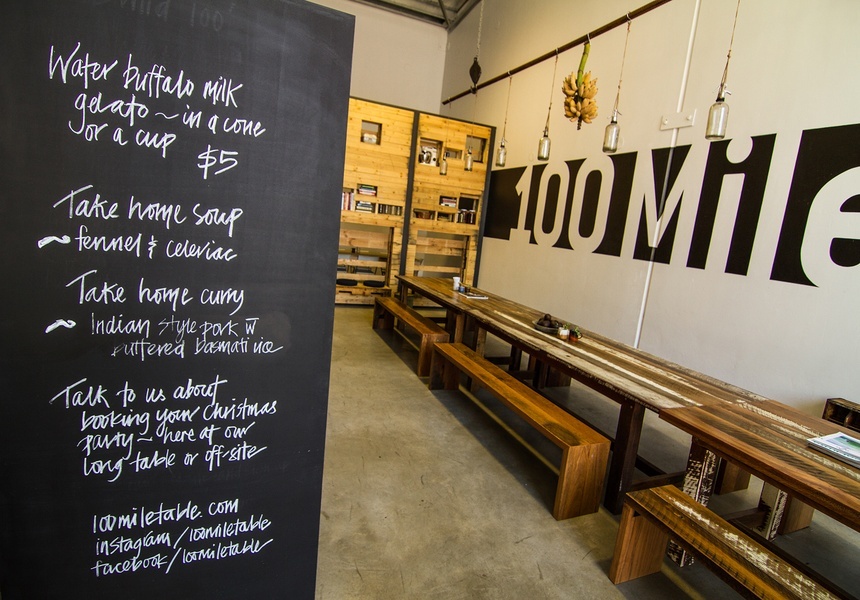 Water buffalo milk
gelato ~ in a cone
or a cup $5
Take home soup
~ fennel & celeriac
Take home curry
~ Indian style pork w
buttered basmati rice
Talk to us about
booking your Christmas
party ~ here at our
long table or off-site
100miletable.com
instagram/100miletable
facebook/100miletable
100 Mile